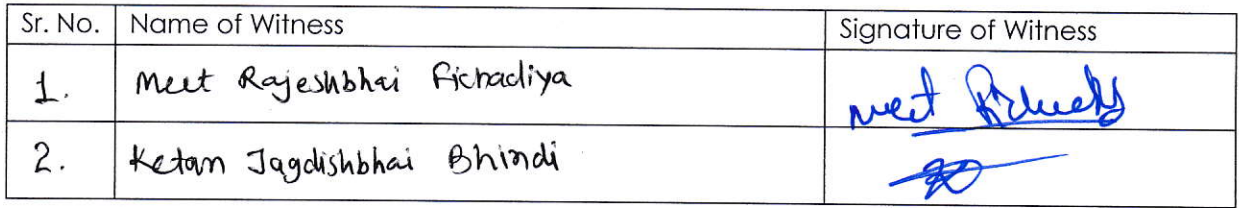 Sr. No. Name of Witness Signature of Witness
1. Meet Rajeshbhai Fichadiya meet
2. Ketan Jagdishbhai Bhindi